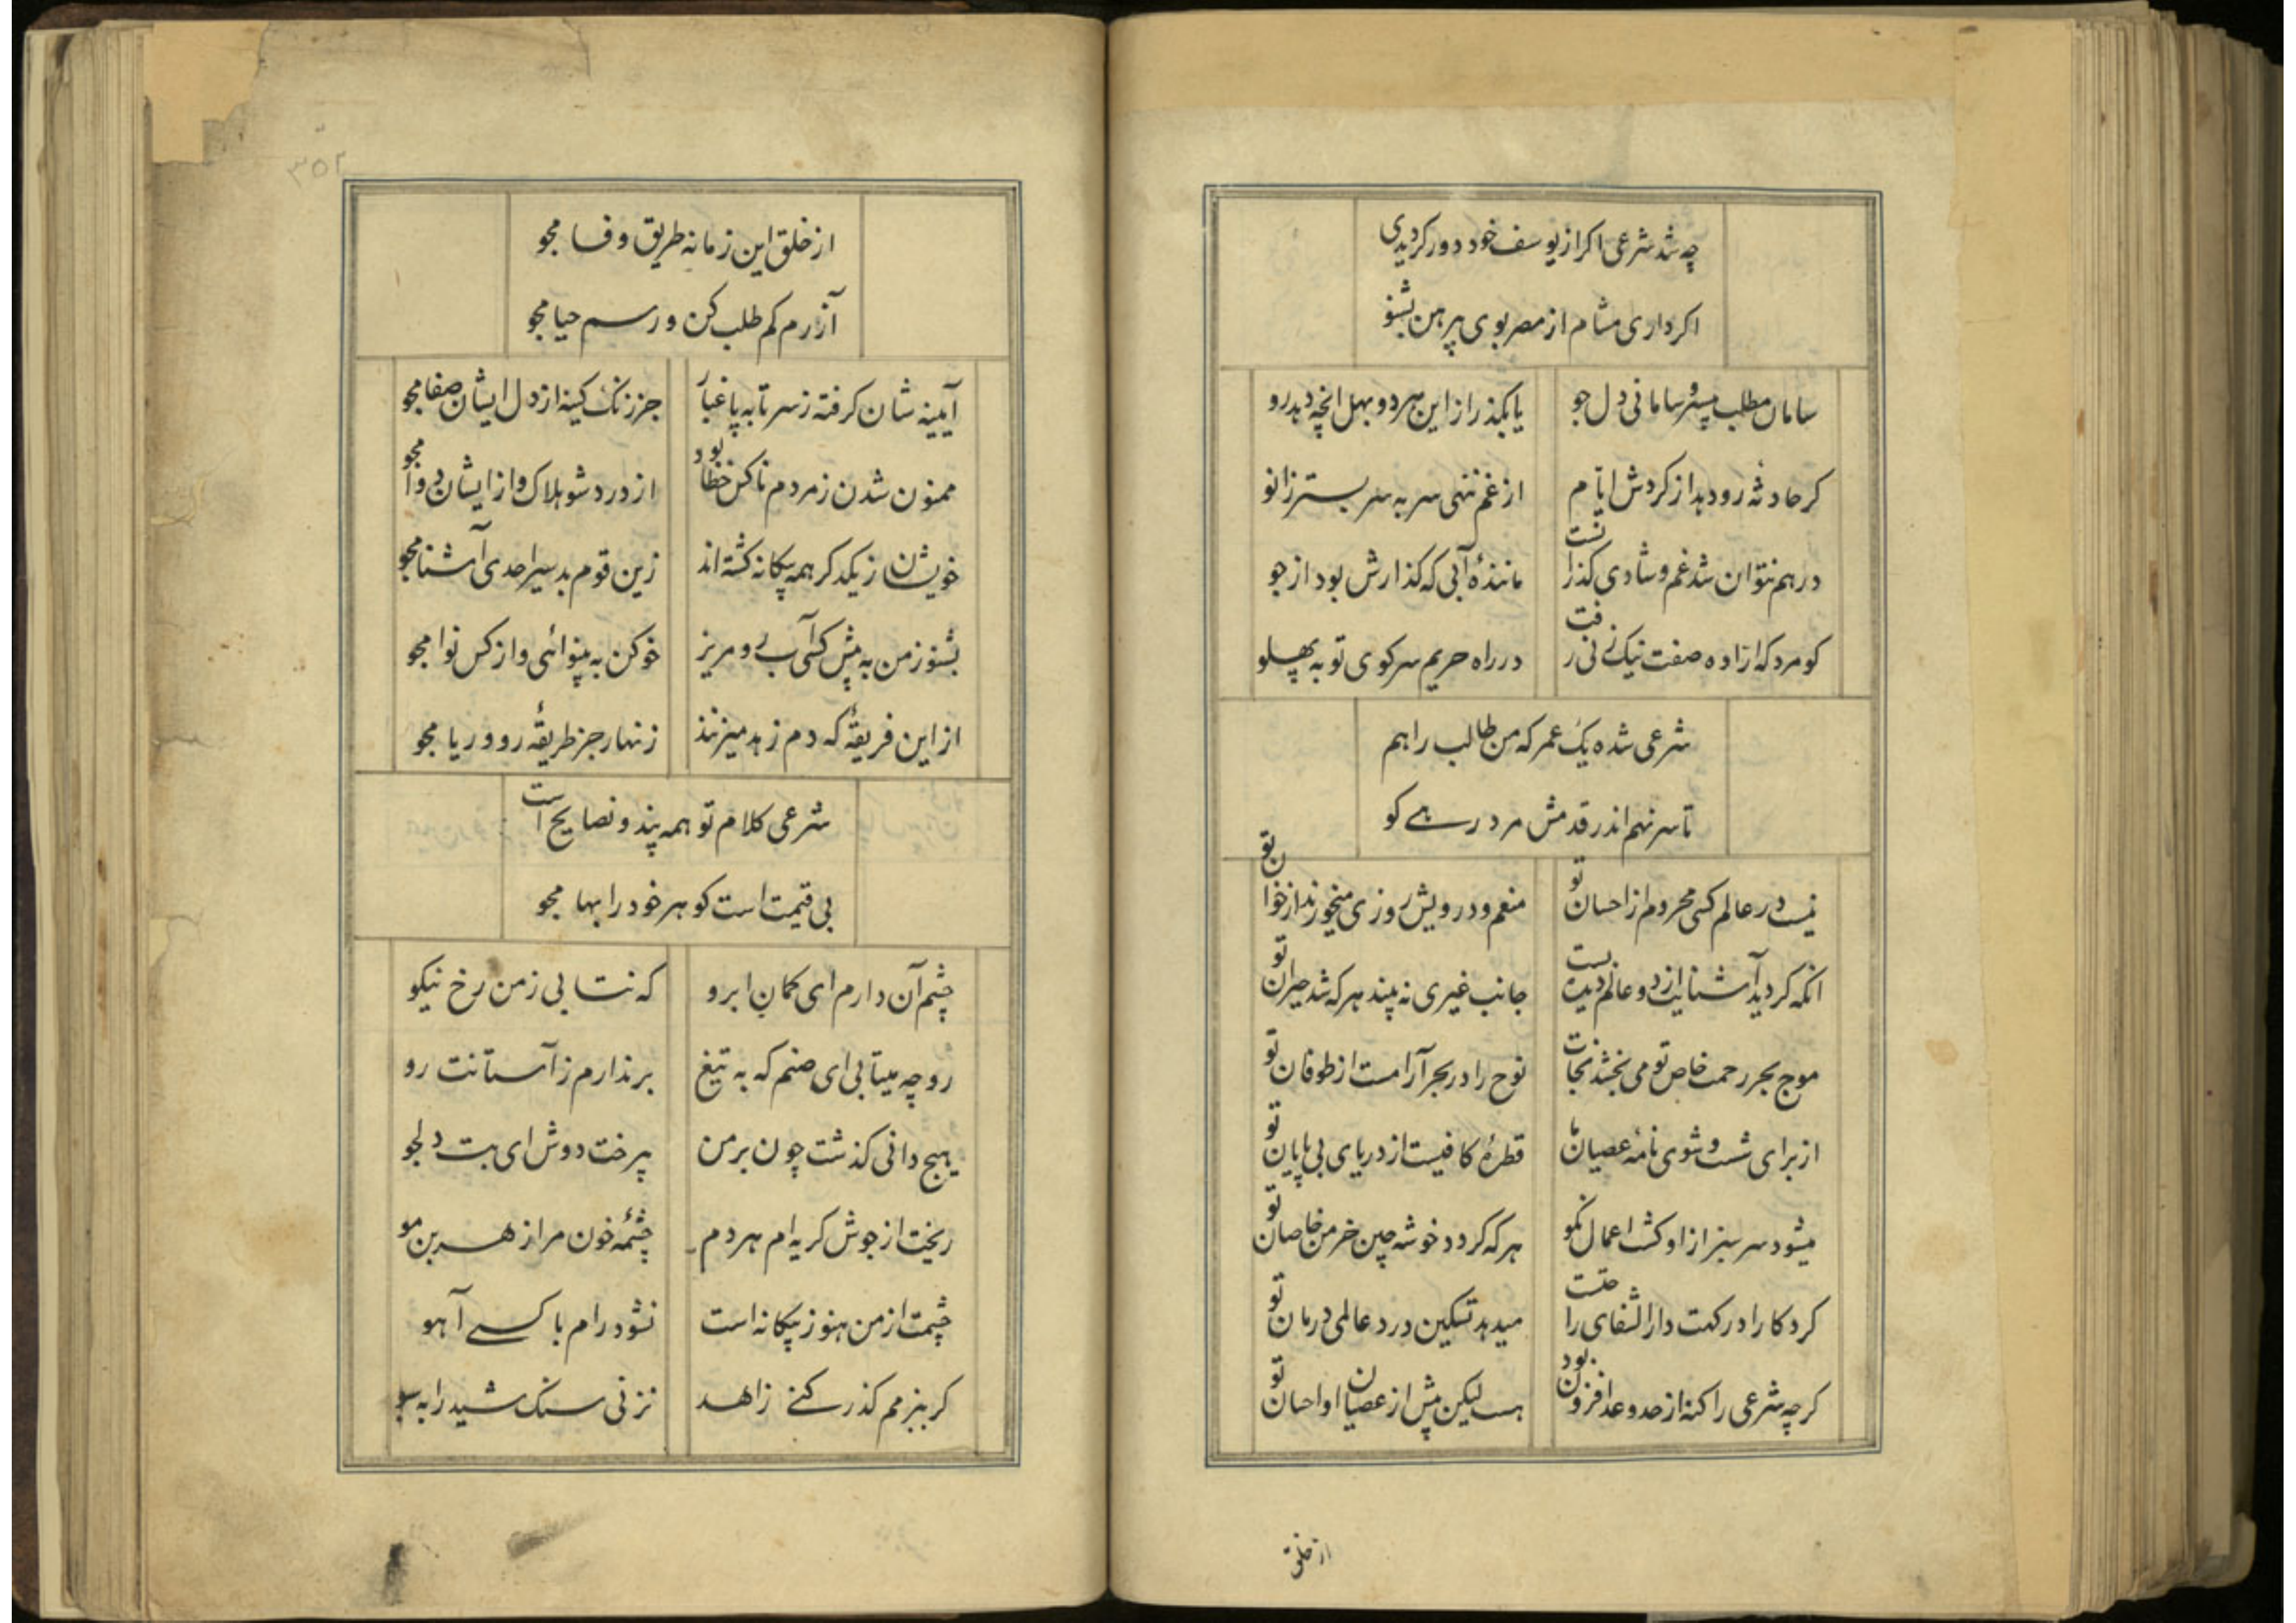 چه شد شرعی اکر از یوسف خود دور کردیدی
اکر داری مشام از مصر بوی پیرهن بشنو
سامان مطلب بیسر و سامانی دل جو
یا بکذر از این هر دو بهل انچه دهد رو
کر حادثه رو دهد از کردش ایام
از غم ننهی سر به سر بستر زانو
در هم نتوان شد غم و شادی کذرانست
مانندهٔ آبی که کذارش بود از جو
کو مرد که ازاده صفت نیک پی رفت
در راه حریم سر کوی تو به پهلو
شرعی شده یک عمر که من طالب راهم
تا سر نهم اندر قدمش مرد رهی کو
نیست در عالم کسی محروم از احسان تو
منعم و درویش روزی میخورند از خوان تو
انکه کردید آشنایت از دو عالم دیده بست
جانب غیری نه بیند هر که شد حیران تو
موج بحر رحمت خاص تو می بخشد نجات
نوح را در بحر آرامست از طوفان تو
از برای شست و شوی نامهٔ عصیان ما
قطرهٔ کافیست از دریای بی پایان تو
میشود سر سبز از او کشت اعمال نکو
هر که کردد خوشه چین خرمن خاصان تو
کرد کارا در کهت دار الشفای راحتست
میدهد تسکین درد عالمی درمان تو
کرچه شرعی را کنه از حد و عد افزون بود
هست لیکن پیش از عصیان او احسان تو
از خلق
۳۵۲
از خلق این زمانه طریق وفا مجو
آزرم کم طلب کن و رسم حیا مجو
آیینه شان کرفته ز سر تا به پا غبار
جز زنک کینه از دل ایشان صفا مجو
ممنون شدن ز مردم ناکس خطا بود
از درد شو هلاک و از ایشان دوا مجو
خویشان ز یکدکر همه بیکانه کشته اند
زین قوم بد سیر احدی آشنا مجو
بشنو ز من به پیش کسی آب رو مریز
خو کن به بینوائی و از کس نوا مجو
از این فریقهٔ که دم زهد میزنند
زنهار جز طریقهٔ رو و ریا مجو
شرعی کلام تو همه پند و نصایح است
بی قیمت است کوهر خود را بها مجو
چشم آن دارم ای کمان ابرو
که نتابی ز من رخ نیکو
رو چه میتابی ای صنم که به تیغ
بر ندارم ز آستانت رو
هیچ دانی کذشت چون بر من
بیرخت دوش ای بت دلجو
ریخت از جوش کریه ام هر دم
چشمهٔ خون مرا ز هر بن مو
چشمت از من هنوز بیکانه است
نشود رام با کسی آهو
کر ببزمم کذر کنی زاهد
نزنی سنک شید را به سبو